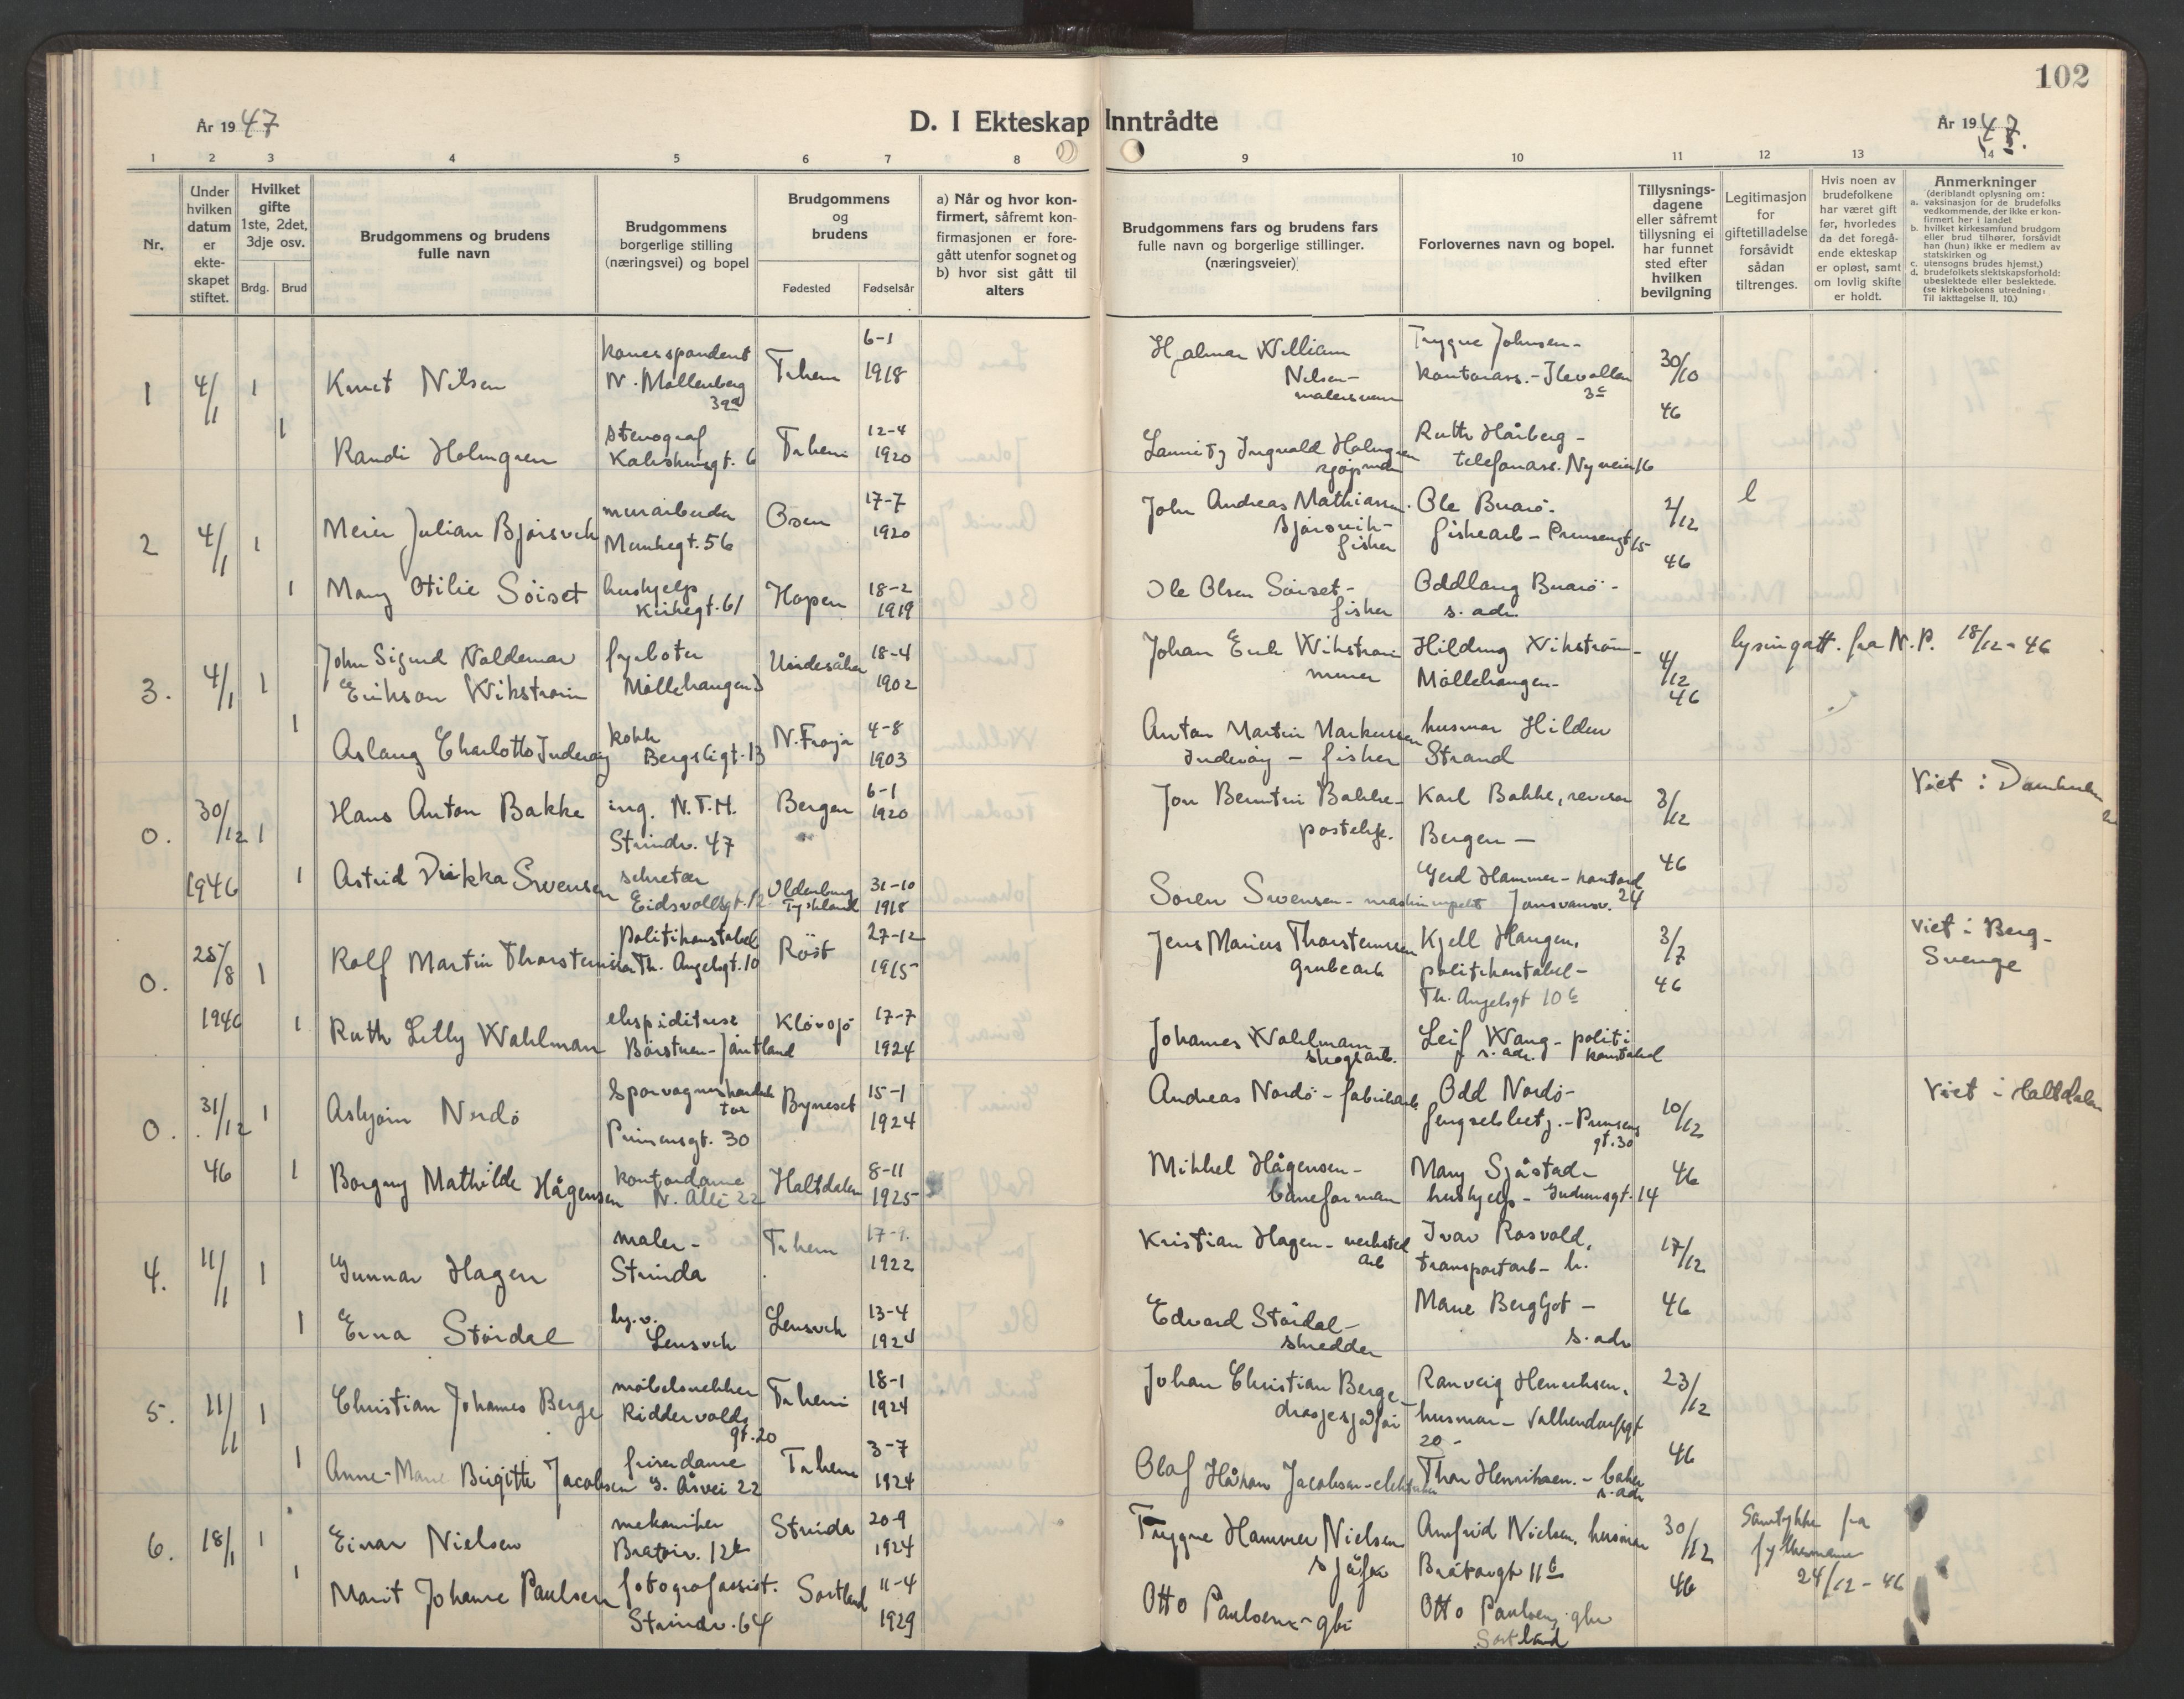 102
År 1947
D. I Ekteskap Inntrådte
År 1947.
1 2 3 4 5 6 7 8 9 10 11 12 13 14
Nr.
Under hvilken datum er ekteskapet stiftet.
Hvilket gifte 1ste, 2det, 3dje osv.
Brdg. Brud
Brudgommens og brudens fulle navn
Brudgommens borgerlige stilling (næringsvei) og bopel
Brudgommens og brudens
Fødested Fødselsår
a) Når og hvor konfirmert, såfremt konfirmasjonen er foregått utenfor sognet og b) hvor sist gått til alters
Brudgommens fars og brudens fars fulle navn og borgerlige stillinger. (næringsveier)
Forlovernes navn og bopel.
Tillysningsdagene eller såfremt tillysning ei har funnet sted efter hvilken bevilgning
Legitimasjon for giftetilladelse forsåvidt sådan tiltrenges.
Hvis noen av brudefolkene har været gift før, hvorledes da det foregående ekteskap er opløst, samt om lovlig skifte er holdt.
Anmerkninger
(deriblandt oplysning om:
a. vaksinasjon for de brudefolks vedkommende, der ikke er konfirmert her i landet
b. hvilket kirkesamfund brudgom eller brud tilhører, forsåvidt han (hun) ikke er medlem av statskirken og
c. utensogns brudes hjemst.)
d. brudefolkets slektskapsforhold: ubeslektede eller beslektede. (se kirkebokens utredning: Til iakttagelse II, 10.)
1 4/1 1 Knut Nilsen korrespondent N. Møllenberg 39a Trheim 6-1 1918 Hjalmar William Nilsen - malersvenn Trygve Johnsen - kontorass. - Ilevollen 3c 30/10 46
1 Randi Holmgren stenograf Kalvskinnsgt. 6 Trheim 12-4 1920 Lauritz Ingvald Holmgren sjøpmann Ruth Hårberg - telefonass. Nyveien 16
2 4/1 1 Meier Julian Bjørsvik murarbeider Munkegt. 56 Osen 17-7 1920 John Andreas Mathiassen Bjørsvik - fisker Ole Buarø. fiskearb - Prinsensgt 15 2/12 46 l
1 Mary Otilie Söiset hushjelp Kirkegt. 61 Hopen 18-2 1919 Ole Olsen Söiset - fisker Oddlaug Buarö - s. adr.
3. 4/1 1 John Sigurd Valdemar Erikson Wikström fyrbøter Möllehaugen 3 Undersåker 18-4 1902 Johan Erik Wikström murer Hilding Wikström - Möllehaugen - 4/12 46 lysingatt. fra N. P. 18/12 - 46
1 Aslaug Charlotte Inderöy kokk Bergsligt. 13 N. Frøya 4-8 1903 Anton Martin Markussen Inderöy - fisker husmor Hildur Strand
0. 30/12 1946 1 Hans Anton Bakke ing. N.T.H. Strindv. 47 Bergen 6-1 1920 Jon Berntin Bakke - postekp. Karl Bakke, revisor Bergen - 3/12 46 Viet i Domkirken
1 Astrid Drikka Svensen sekretær Eidsvollsgt. 12 Oldenburg Tyskland 31-10 1918 Sören Svensen - maskininspektör Gerd Hammer - kontord Jonsvannsv. 24
0. 25/8 1946 1 Rolf Martin Thorsteinsen Politikonstabel Th. Angelsgt. 10 Röst 27-12 1915 Jens Marius Thorsteinsen Grubearb Kjell Haugen, politikonstabel - Th. Angelsgt 10c 3/7 46 Viet i Berg - Sverige
1 Ruth Lilly Wahlman ekspeditrise - Jämtland Klövsjö 17-7 1924 Johannes Wahlmann skogsarb. Leif Wang - politikonstabel s. adr.
0. 31/12 46 1 Asbjørn Nordö Sporvognskonduktør Prinsensgt. 30 Byneset 15-1 1924 Andreas Nordö - fabrikarb Odd Nordö - fengselsbetj. - Prinsensgt. 30 10/12 46 Viet i Haltdalen
1 Borgny Mathilde Hågensen kontordame N. Allé 22 Haltdalen 8-11 1925 Mikkel Hågensen - baneforman Mary Sjåstad - hushjelp - Gudrunsgt. 14
4. 11/1 1 Gunnar Hagen maler - Strinda Trheim 17-9. 1922 Kristian Hagen - verksted arb Ivar Rosvold, transportarb - h. 17/12 46
1 Erna Stördal hj.v. Lensvik Lensvik 13-4 1924 Edvard Stördal - skredder Marie Bergljot - s. adr
5. 11/1 1 Christian Johannes Berge møbelsnekker Riddervolds gt. 20 Trheim 18-1 1924 Johan Christian Berge - drosjesjåfør Ranveig Henriksen, husmor - 20 - 23/12 46
1 Anne-Marie Birgitte Jacobsen frisørdame G. Åsvei 22 Trheim 3-7 1924 Olaf Håkon Jacobsen - elektriker Thor Henriksen. - baker s. adr
6. 18/1 1 Einar Nielsen mekaniker Bratørv. 12b Strinda 20-9 1924 Trygve Hammer Nielsen sjåfør Anfrid Nielsen, husmor 11b 30/12 46 Samtykke fra fylkesmannen 24/12 - 46
1 Marit Johanne Paulsen fotografassist. Strindv. 64 Sortland 11-4 1929 Otto Paulsen - gbr Otto Paulsen, gbr Sortland